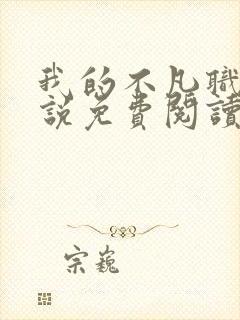 我的不凡職
說免費閱讀
宗巍